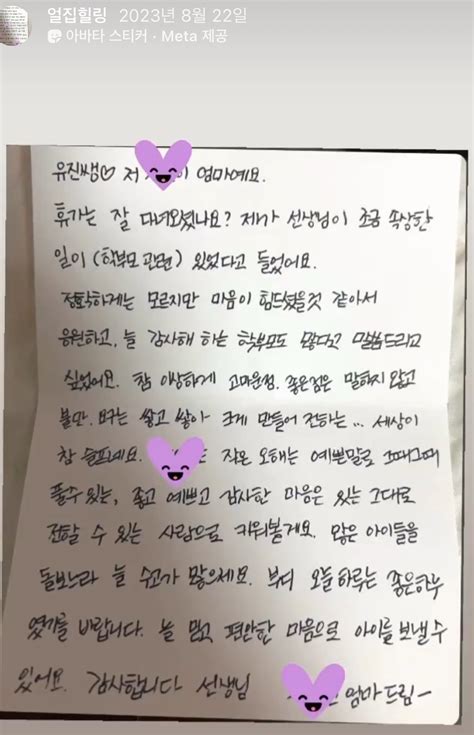 얼집힐링 2023년 8월 22일
아바타 스티커 · Meta 제공
유진쌤♡ 저 이 엄마예요.
휴가는 잘 다녀오셨나요? 제가 선생님이 조금 속상한
일이 (학부모 관련) 있었다고 들었어요.
정확하게는 모르지만 마음이 힘드셨을것 같아서
응원하고, 늘 감사해 하는 학부모도 많다고 말씀드리고
싶었어요. 참 이상하게 고마운점. 좋은점은 말하지 않고
불만. 요구는 쌓고 쌓아 크게 만들어 전하는... 세상이
참 슬프네요. 는 작은 오해는 예쁜말로 그때그때
풀수있는, 좋고 예쁘고 감사한 마음은 있는 그대로
전할 수 있는 사람으로 키워볼게요. 많은 아이들을
돌보느라 늘 수고가 많으세요. 부디 오늘 하루는 좋은하루
였기를 바랍니다. 늘 믿고 편안한 마음으로 아이를 보낼 수
있어요. 감사합니다 선생님 엄마드림-